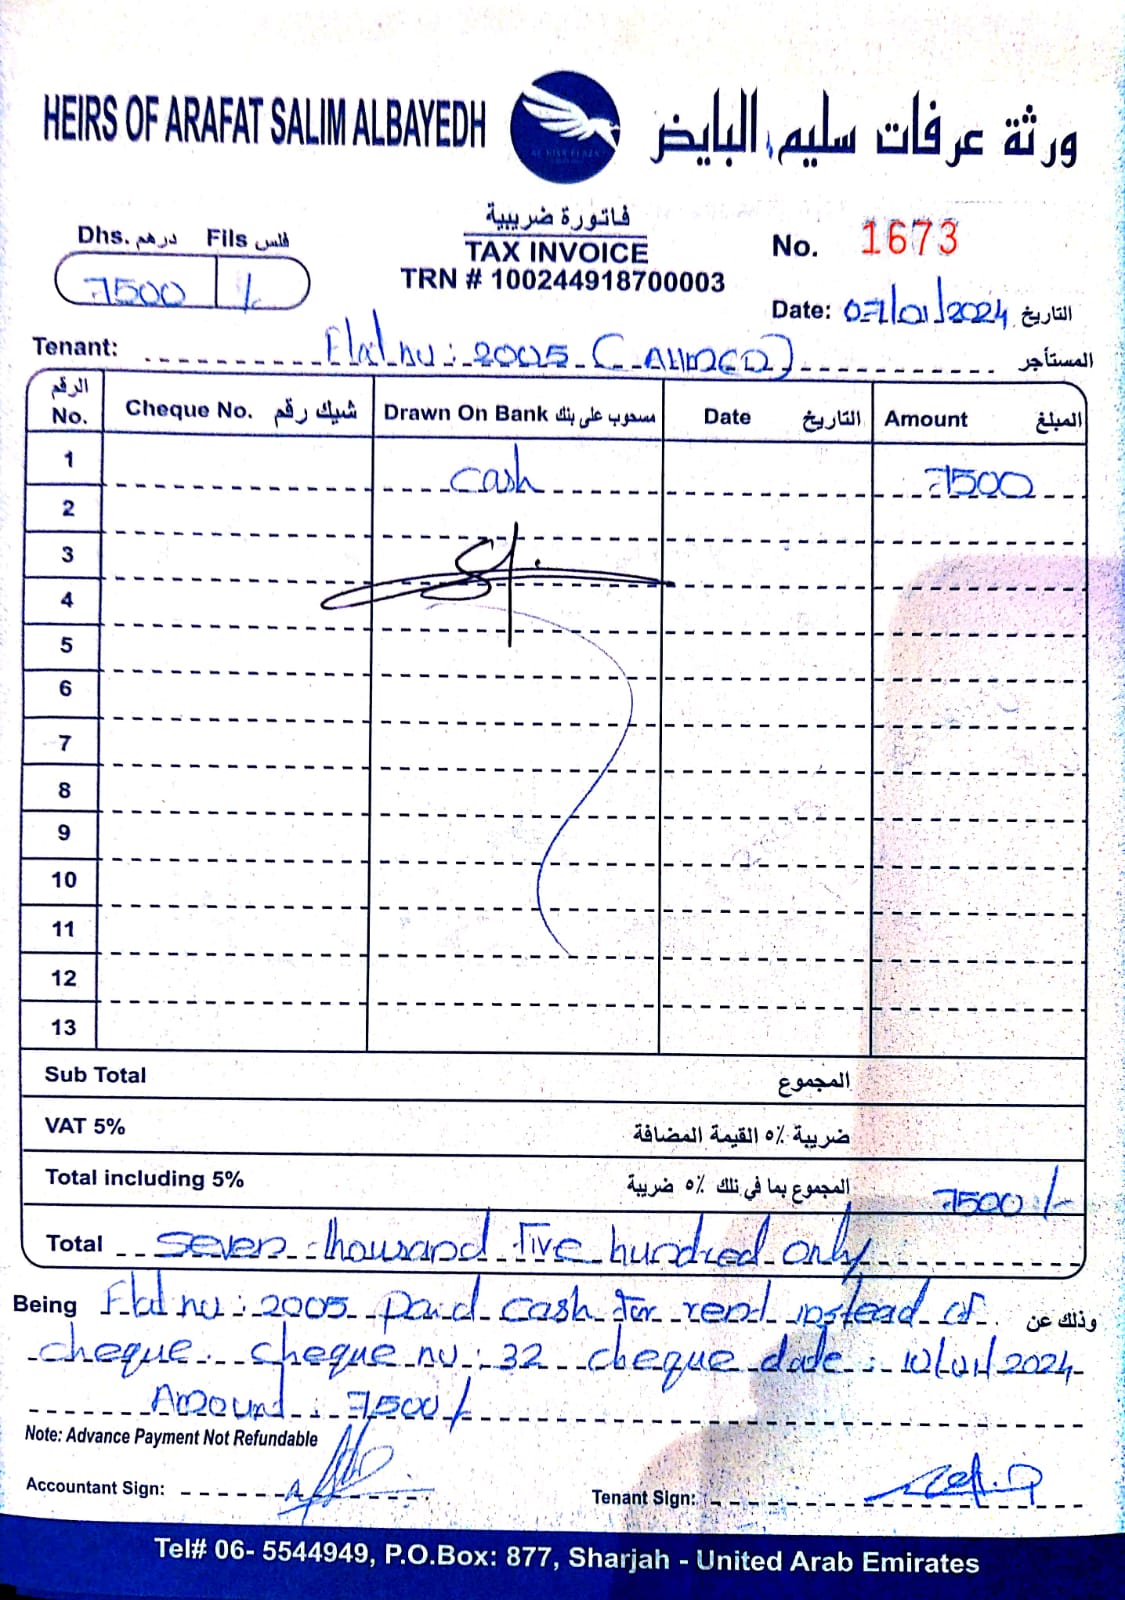 HEIRS OF ARAFAT SALIM ALBAYEDH
ورثة عرفات سليم البايض
Dhs. درهم Fils فلس
7500 /-
فاتورة ضريبية
TAX INVOICE
TRN # 100244918700003
No. 1673
Date: 07/01/2024 التاريخ
Tenant: Flat no: 2005 (AHMED) المستأجر
الرقم No. Cheque No. شيك رقم Drawn On Bank مسحوب على بنك Date التاريخ Amount المبلغ
1 cash 7500
2
3
4
5
6
7
8
9
10
11
12
13
Sub Total المجموع
VAT 5% ضريبة ٥٪ القيمة المضافة
Total including 5% المجموع بما في ذلك ٥٪ ضريبة 7500/-
Total Seven thousand five hundred only
Being Flat no: 2005 paid cash for rent instead of وذلك عن
cheque. cheque no: 32 cheque date: 10/01/2024
Amount: 7,500/-
Note: Advance Payment Not Refundable
Accountant Sign:
Tenant Sign:
Tel# 06- 5544949, P.O.Box: 877, Sharjah - United Arab Emirates